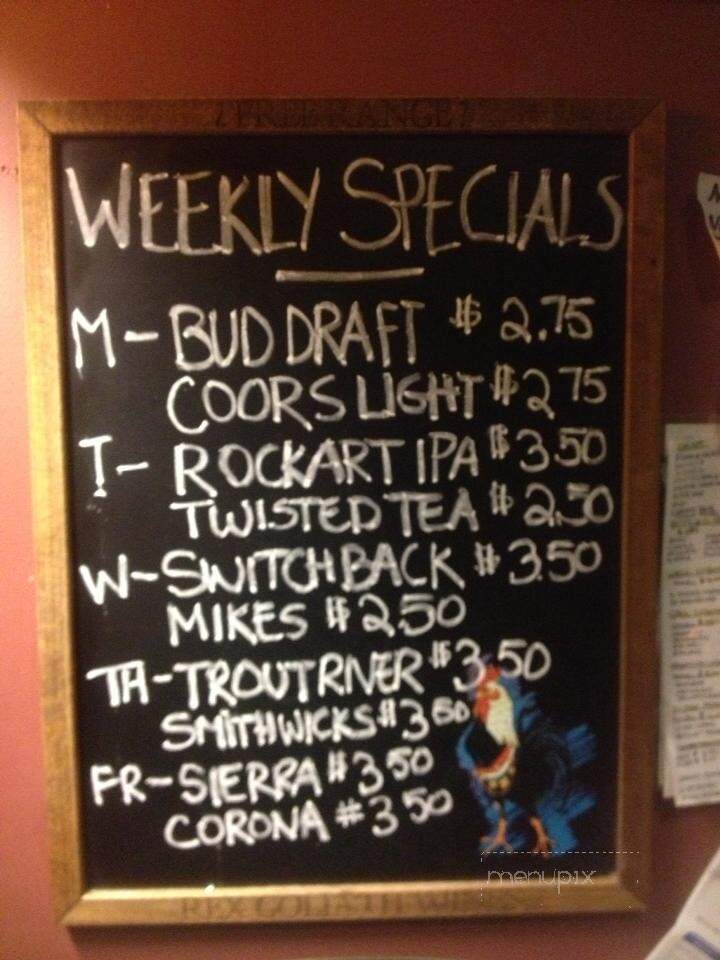 ? FREE RANGE ?
WEEKLY SPECIALS
M- BUD DRAFT $ 2.75
COORS LIGHT $ 2 75
T- ROCKART IPA $ 3.50
TWISTED TEA $ 2.50
W- SWITCHBACK $ 3.50
MIKES $ 2.50
TH- TROUT RIVER $ 3.50
SMITHWICKS $ 3 50
FR- SIERRA # 3 50
CORONA # 3 50
menupix
REX GOLIATH WINES